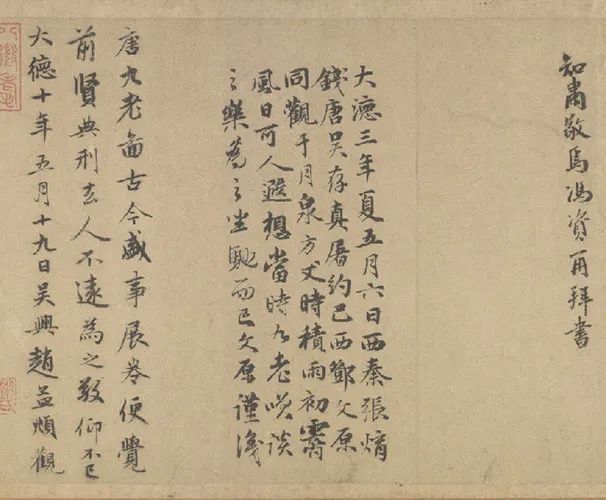 知肅敬焉馮資再拜書
大德三年夏五月六日西秦張𤊟
錢唐吳存真屠約巴西鄧文原
同觀于月泉方丈時積雨初霽
風日可人遐想當時九老嘆談
之樂為之坐馳而已文原謹識
唐九老圖古今盛事展卷便覺
前賢典刑去人不遠為之敬仰不已
大德十年五月十九日吳興趙孟頫觀